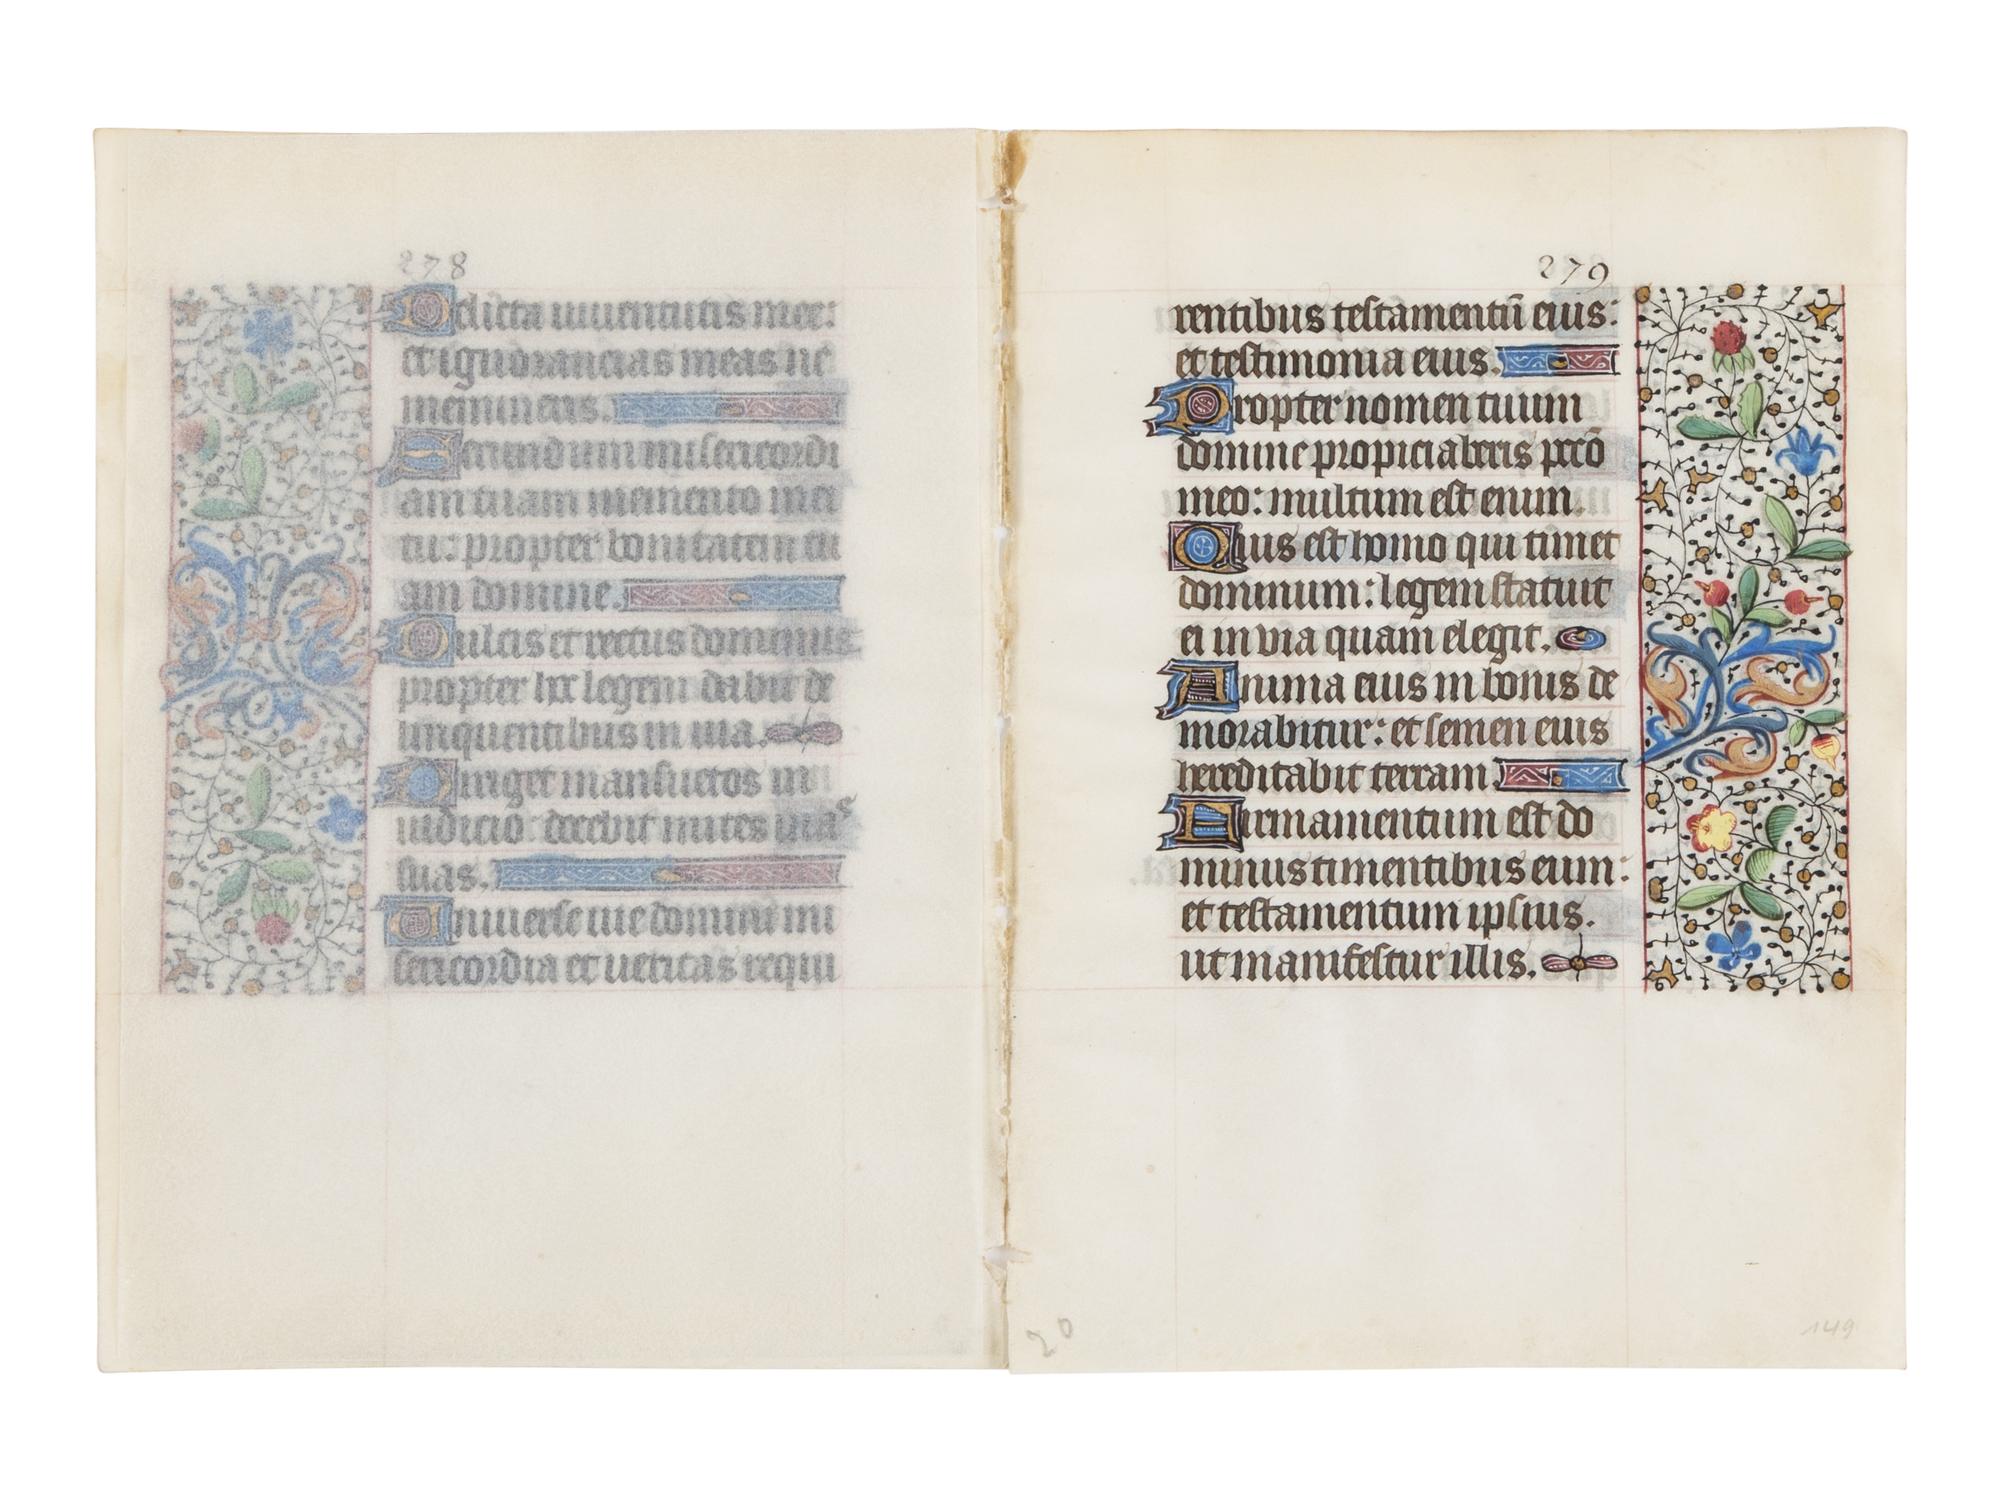 278
Delicta iuuentutis mee:
et ignorancias meas ne
memineris.
Secundum misericordi
am tuam memento mei
tu: propter bonitatem tu
am domine.
Dulcis et rectus dominus
propter hoc legem dabit de
linquentibus in uia.
Diriget mansuetos in
iudicio: docebit mites uias
suas.
Uniuerse uie domini mi
sericordia et ueritas requi
279
rentibus testamentū eius:
et testimonia eius.
Propter nomen tuum
domine propiciaberis pccō
meo: multum est enim.
Quis est homo qui timet
dominum: legem statuit
ei in via quam elegit.
Anima eius in bonis de
morabitur: et semen eius
hereditabit terram.
Firmamentum est do
minus timentibus eum:
et testamentum ipsius.
ut manifestur illis.
20
149